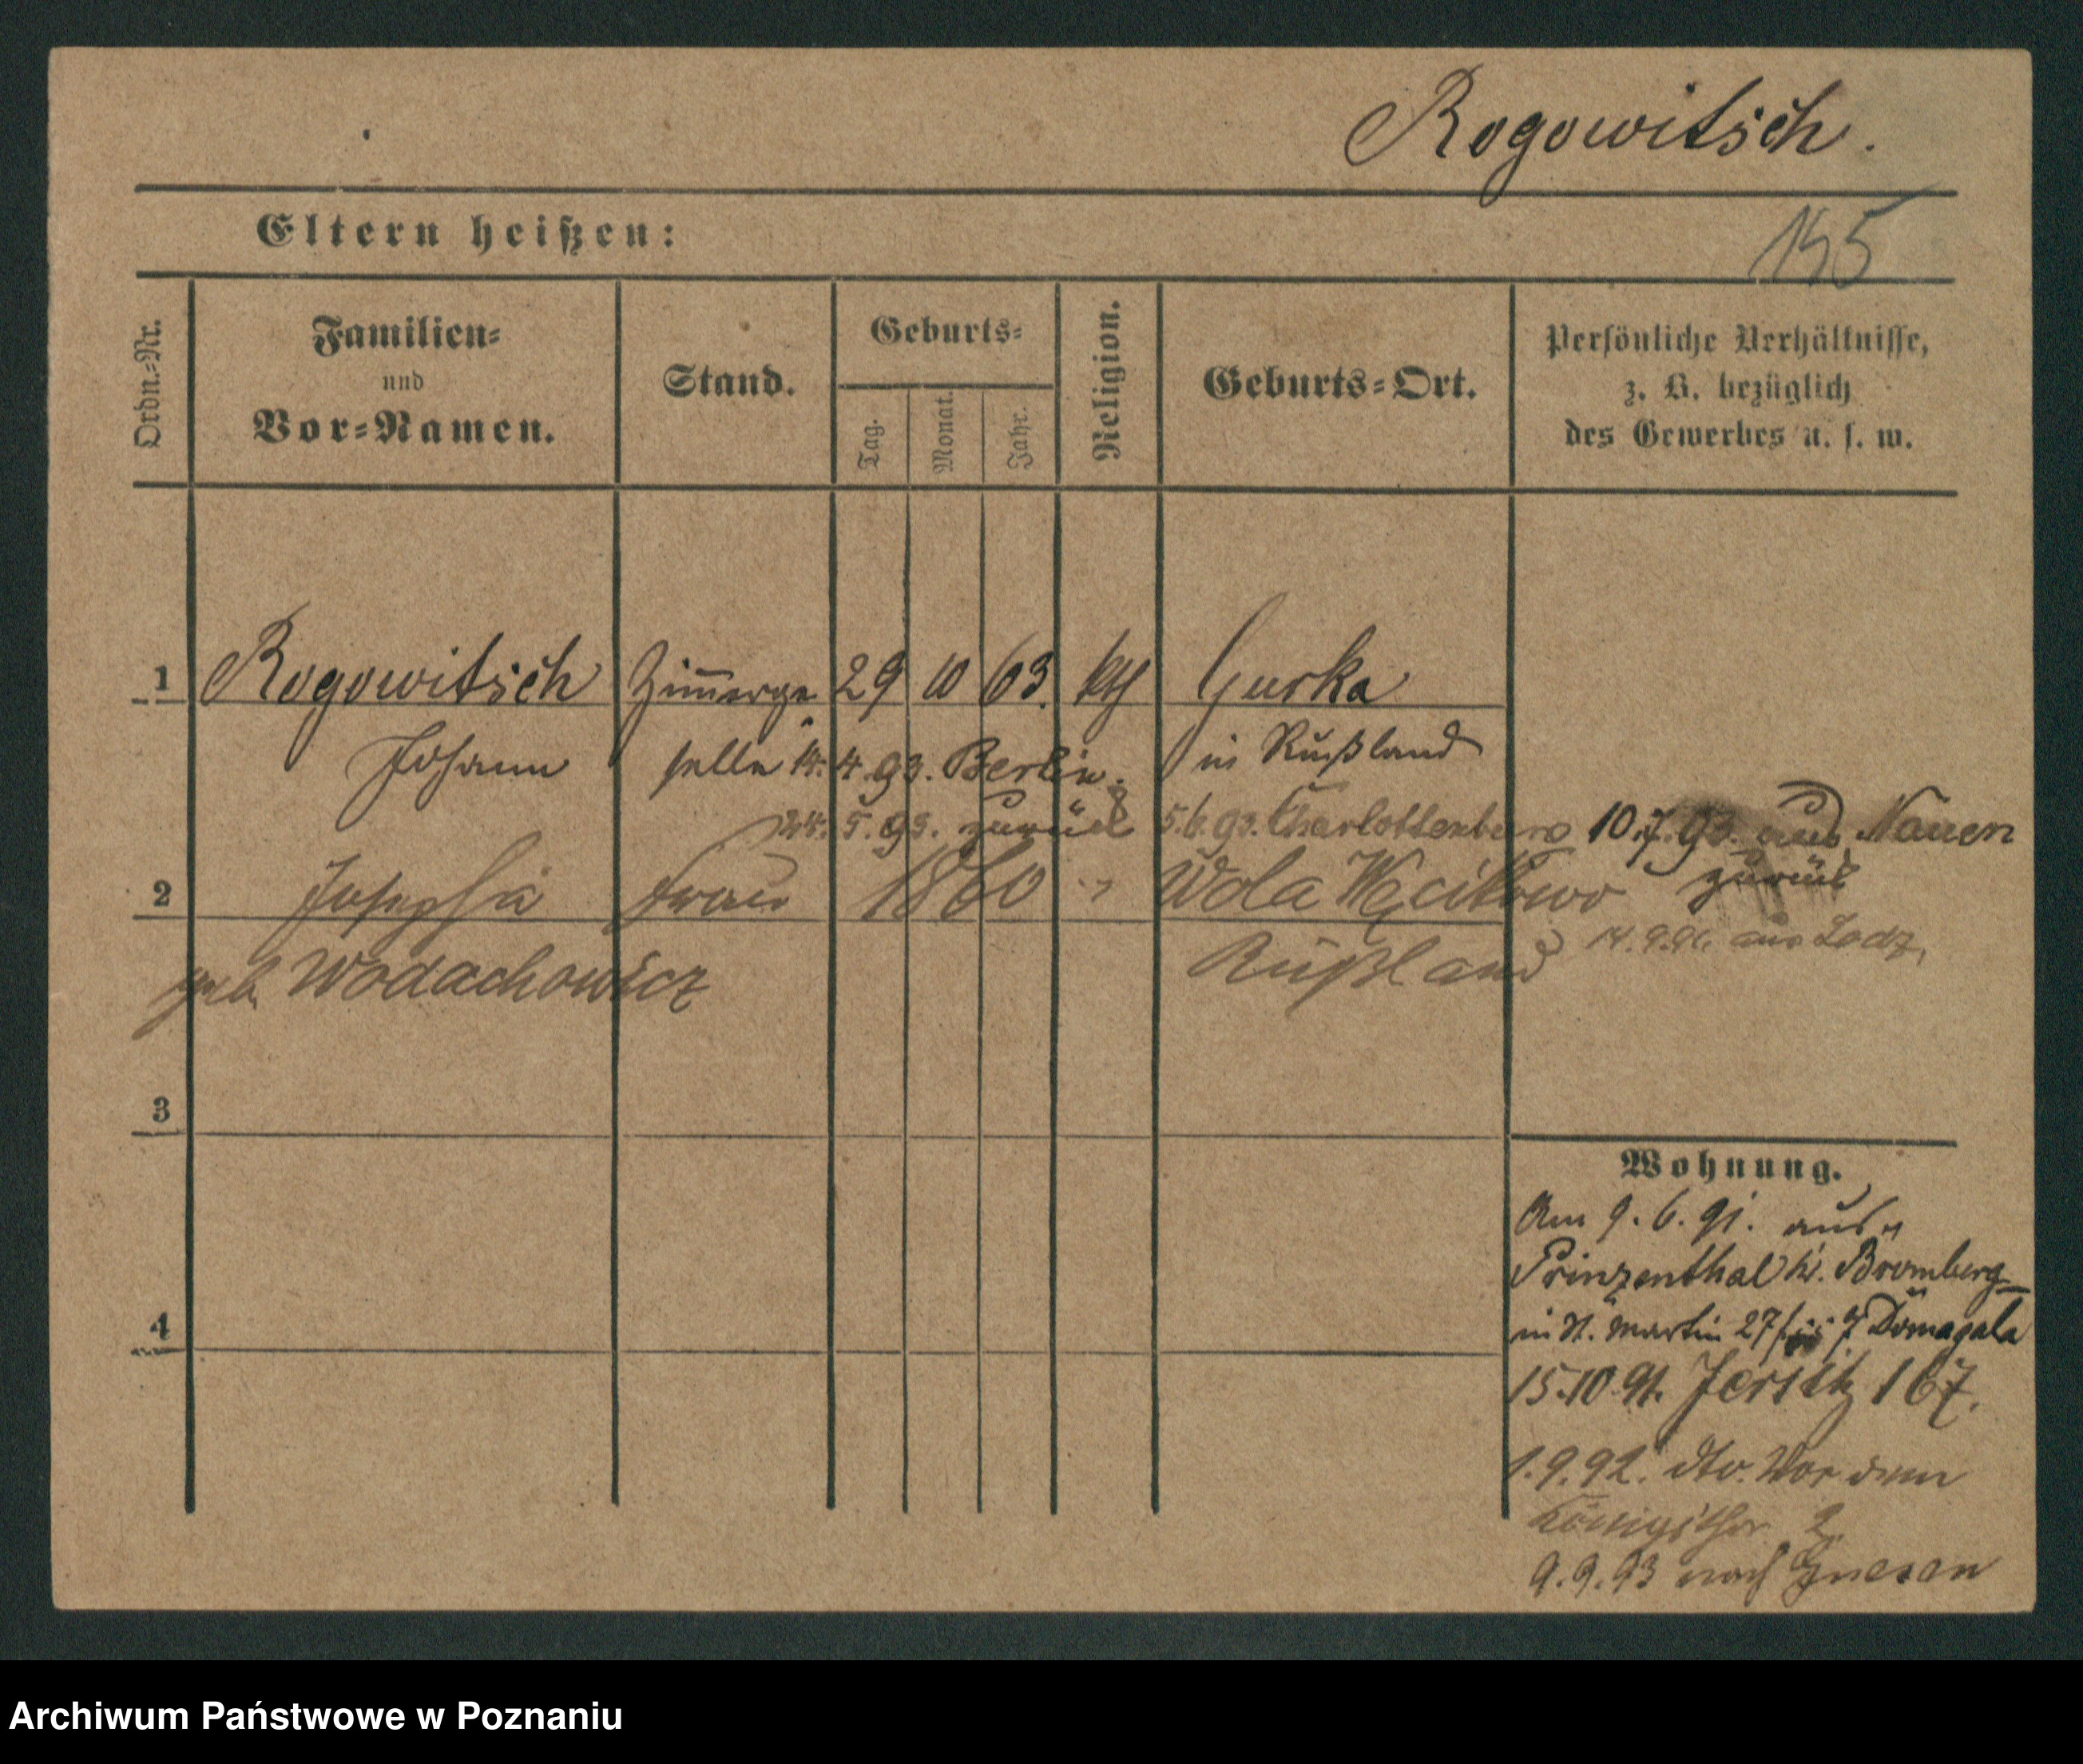 Rogowitsch.
Eltern heißen:
155
Ordn.-Nr.
Familien-
und
Vor-Namen.
Stand.
Geburts-
Tag.
Monat.
Jahr.
Religion.
Geburts-Ort.
Persönliche Verhältnisse,
z. B. bezüglich
des Gewerbes u. s. w.
1 Rogowitsch Zimmerge 29 10 63. kth Gurka
Johann selle 14. 4. 93. Berlin. in Rußland
24. 5. 93. zurück 5.6.93. Charlottenburg 10.7.93. aus Nauen
zurück
2 Josepha Frau 1860 " Wola
geb. Wodachowicz Rußland
aus Lodz,
3
4
Wohnung.
Am 9. 6. 91. aus
Prinzenthal Kr. Bromberg
in St. Martin 27 Domagala
15.10.91. Jersitz 167.
1.9.92. dto. Vor dem
Königsthor 2.
9.9.93 nach Gnesen
Archiwum Państwowe w Poznaniu